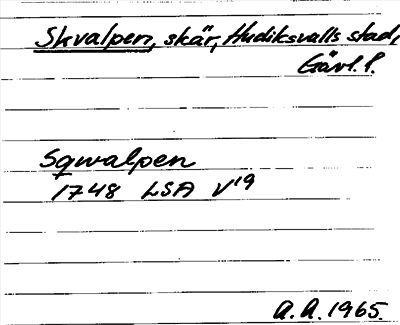 Skvalpen, skär, Hudiksvalls stad,
Gävl. l.
Sqwalpen
1748 LSA V19
A.A. 1965.